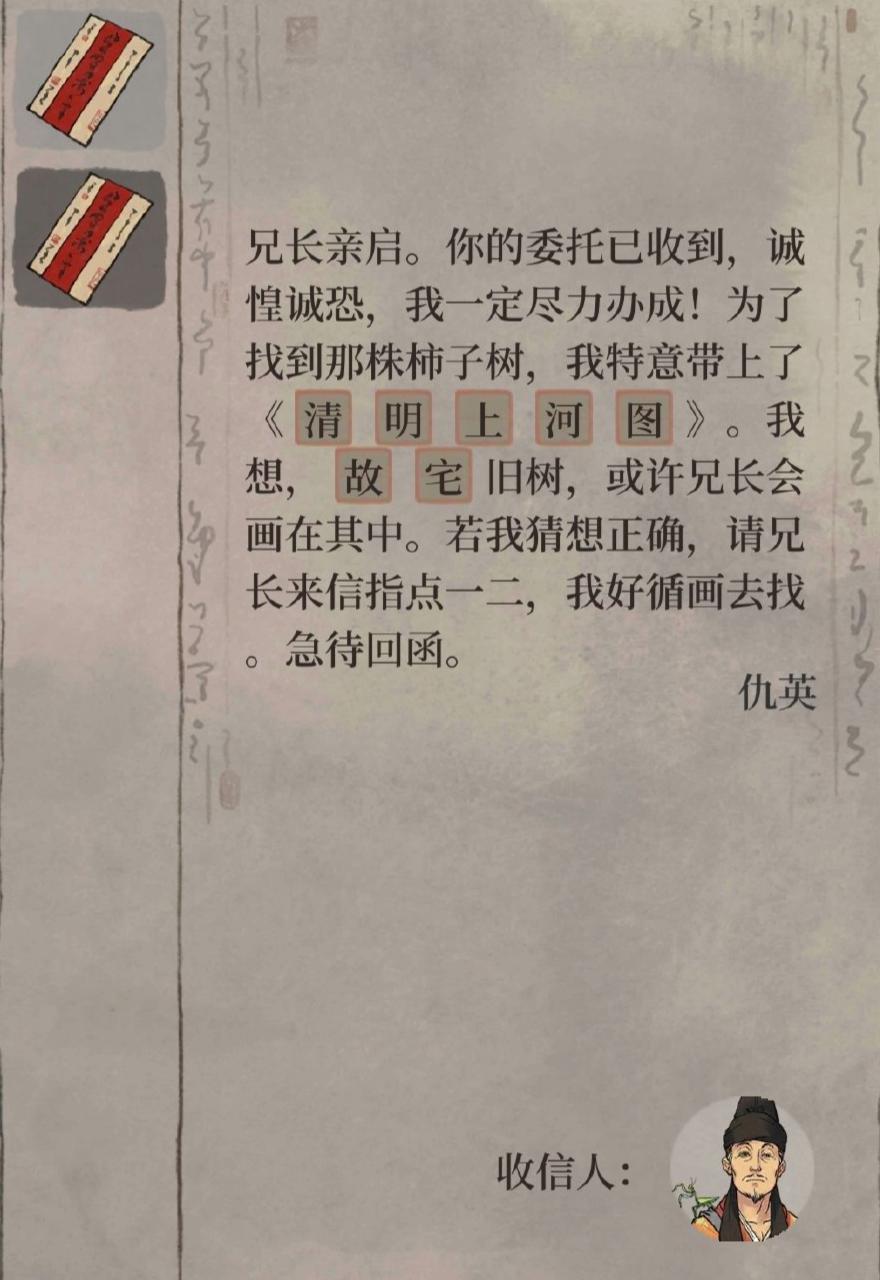 兄长亲启。你的委托已收到，诚
惶诚恐，我一定尽力办成！为了
找到那株柿子树，我特意带上了
《清明上河图》。我
想，故宅旧树，或许兄长会
画在其中。若我猜想正确，请兄
长来信指点一二，我好循画去找
。急待回函。
仇英
收信人：